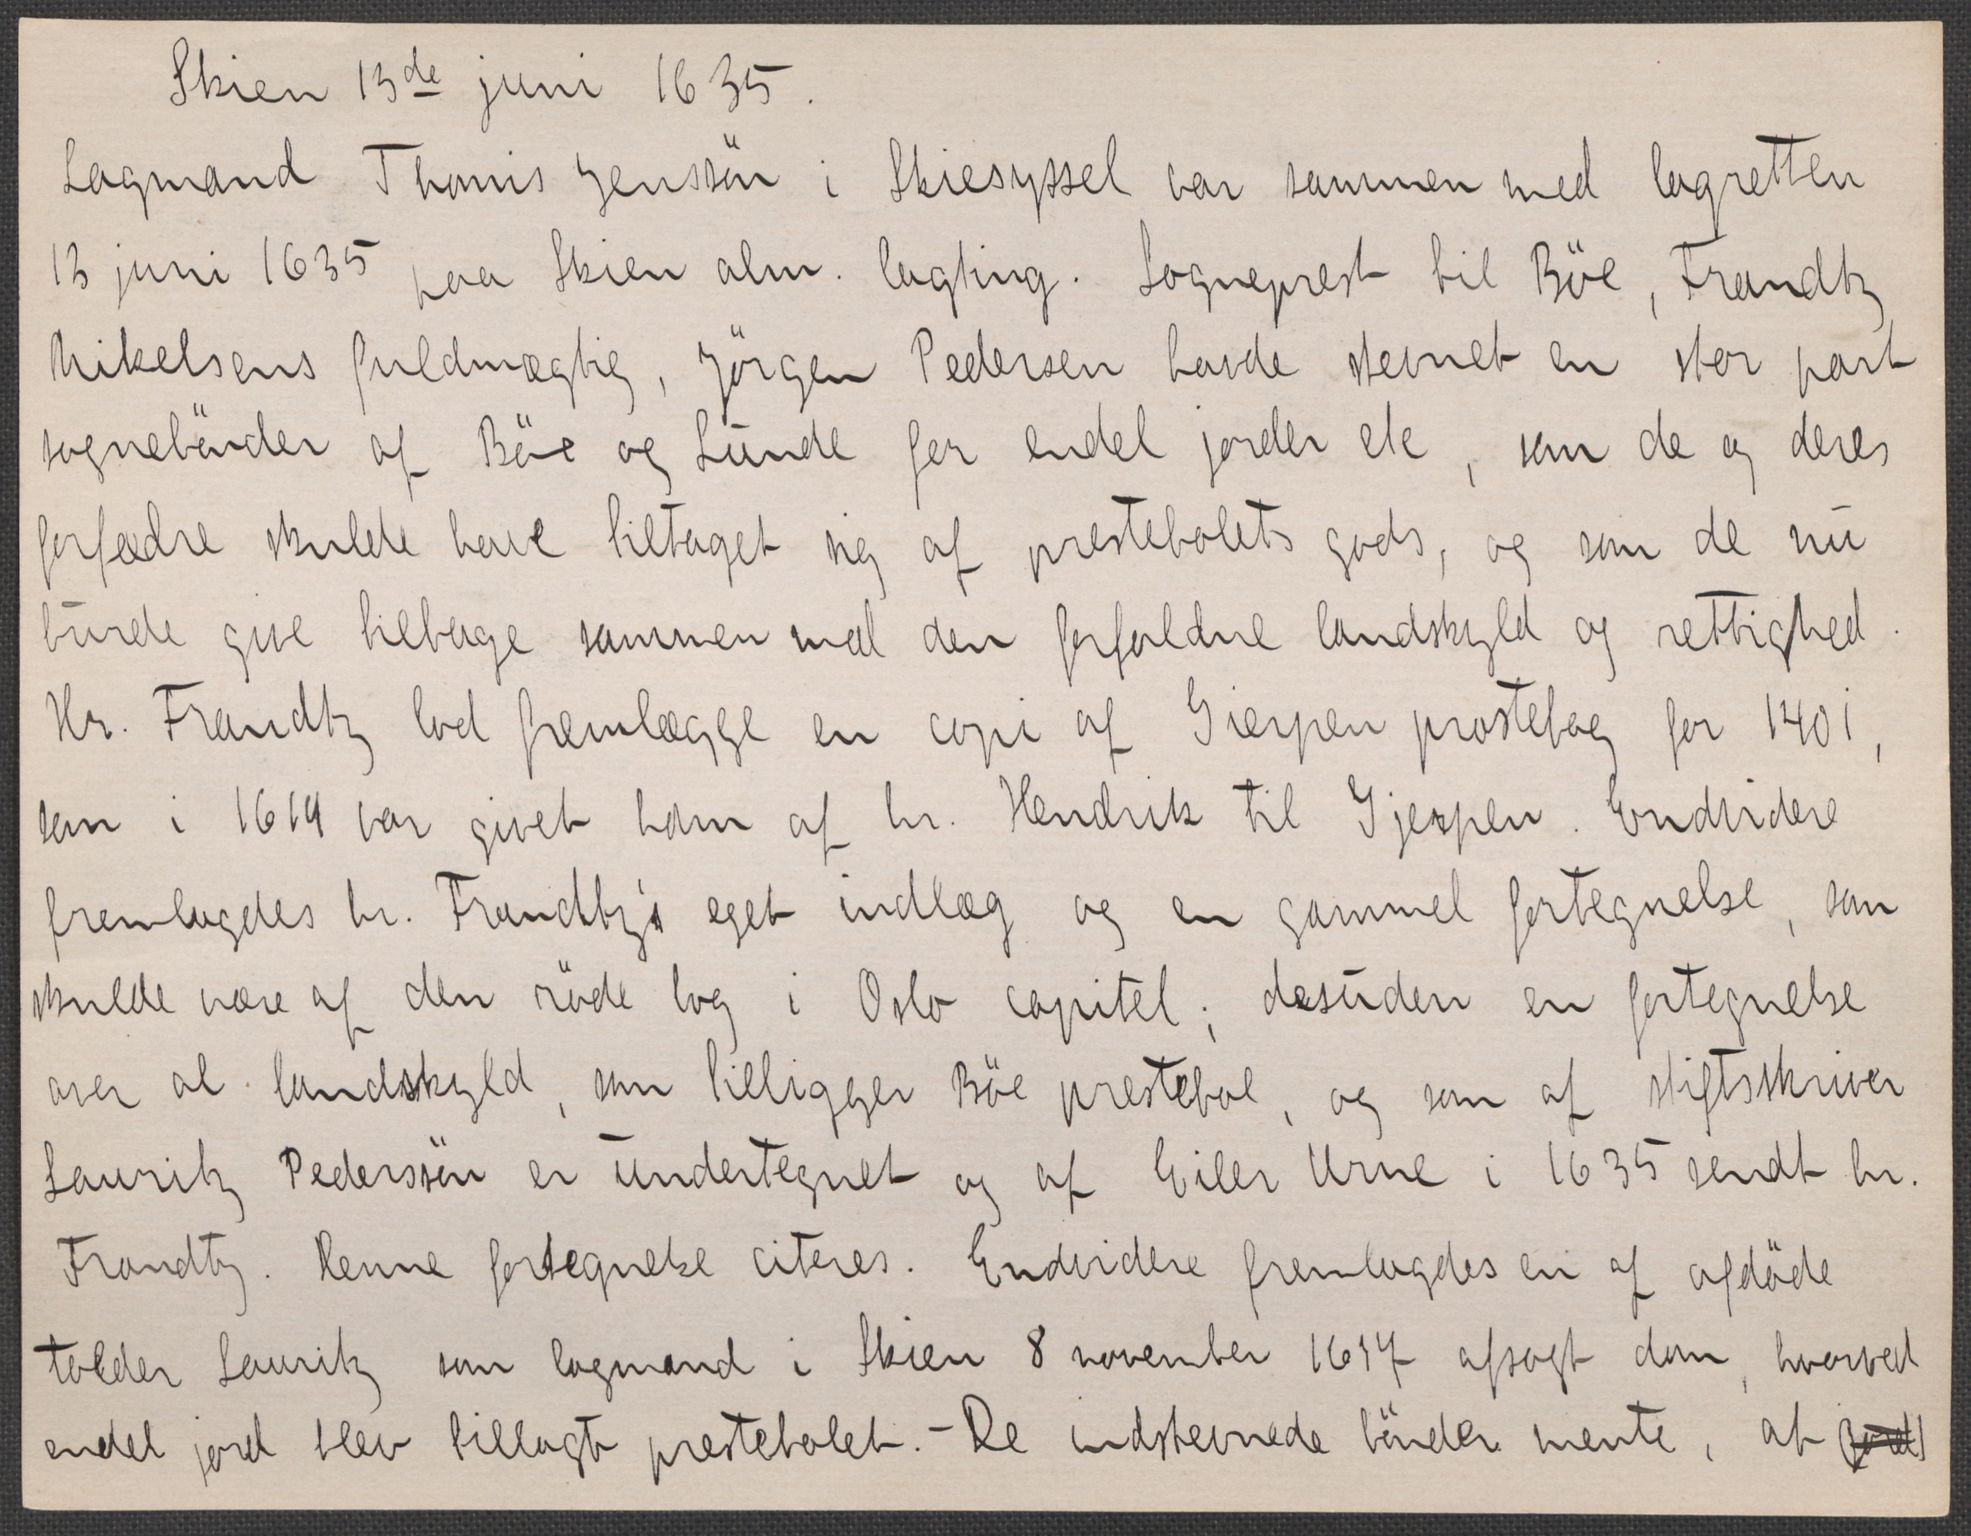 Skien 13de juni 1635.
Lagmand Thomis Jenssön i Skiesyssel var sammen med lagretten
13 juni 1635 paa Skien alm. lagting. Sogneprest til Böe, Frandtz
Mikelsens fuldmægtig, Jörgen Pedersen havde stevnet en stor part
sognebönder af Böe og Lunde for endel jorder etc, som de og deres
forfædre skulde have tiltaget sig af prestebolets gods, og som de nu
burde give tilbage sammen med den forfaldne landskyld og rettighed.
Hr. Frandtz lod fremlægge en copi af Gierpen prostebog for 1401,
som i 1614 var givet ham af hr. Hendrik til Gjerpen. Endvidere
fremlagdes hr. Frandtz's eget indlæg og en gammel fortegnelse, som
skulde være af den röde bog i Oslo capitel; desuden en fortegnelse
over al landskyld, som tilligger Böe prestebol, og som af stiftsskriver
Lauritz Pederssön er undertegnet og af Eiler Urne i 1635 sendt hr.
Frandtz. Denne fortegnelse citeres. Endvidere fremlagdes en af afdöde
tolder Lauritz som lagmand i Skien 8 november 1617 afsagt dom, hvorved
endel jord blev tillagt prestebolet. - De indstevnede bönder mente, at